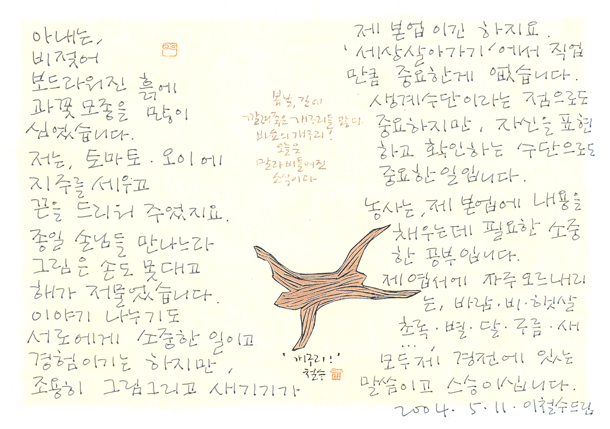 아내는,
비젖어
보드라워진 흙에
과꽃 모종을 많이
심었습니다.
저는, 토마토·오이에
지주를 세우고
끈을 드리워 주었지요.
종일 손님들 만나느라
그림은 손도 못대고
해가 저물었습니다.
이야기 나누기도
서로에게 소중한 일이고
경험이기는 하지만,
조용히 그림그리고 새기기가
봄날, 길에
깔려죽은 개구리들 많다.
바쇼의 개구리!
오늘은
말라 비틀어진
소식이다
'개구리!'
철수
제 본업이긴 하지요.
'세상살아가기'에서 직업
만큼 중요한게 없습니다.
생계수단이라는 점으로도
중요하지만, 자신을 표현
하고 확인하는 수단으로도
중요한 일입니다.
농사는, 제 본업에 내용을
채우는데 필요한 소중
한 공부입니다.
제 엽서에 자주 오르내리
는, 바람·비·햇살
초록·별·달·구름·새
...,
모두 제 경전에 있는
말씀이고 스승이십니다.
2004. 5. 11. 이철수드림